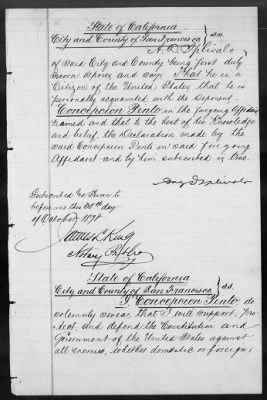 State of California
City and County of San Francisco } ss.
A. D. Splivalo
of said City and County being first duly
sworn deposes and says That he is a
Citizen of the United States that he is
personally acquainted with the deponent
Concepcion Pinto in the foregoing Affidavit
named and that to the best of his Knowledge
and belief, the Declaration made by the
said Concepcion Pinto in said foregoing
Affidavit and by him subscribed is true.
Splivalo
Subscribed & Sworn to
before me this day
of October 1874
James L. King
Notary Public
State of California
City and County of San Francisco } ss.
I Concepcion Pinto do
solemnly swear that I will support, Pro-
tect, and defend the Constitution and
Government of the United States against
all enemies, whether domestic or foreign;